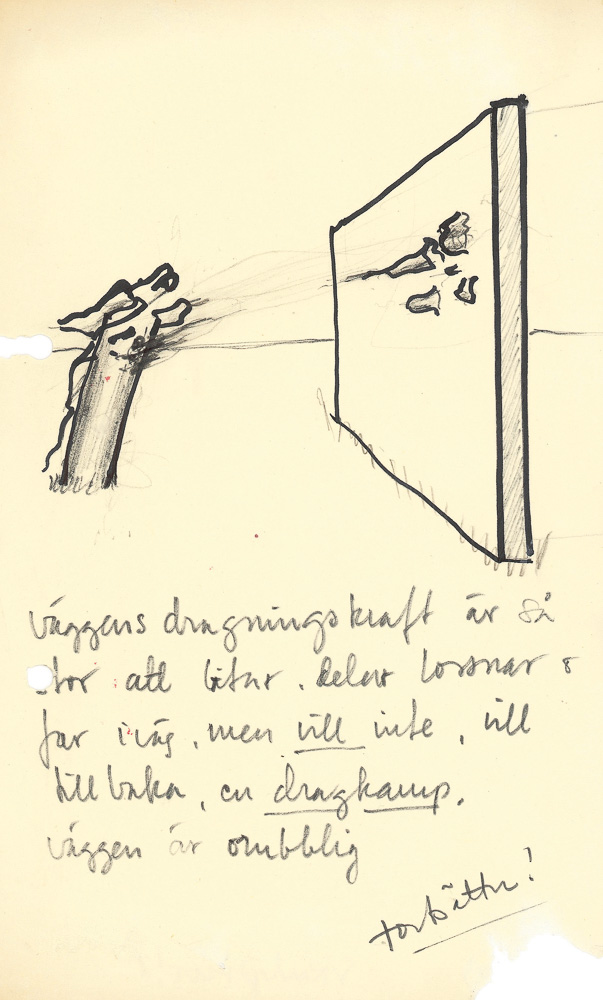 väggens dragningskraft är så
stor att bitar. delar lossnar &
far iväg, men vill inte, vill
tillbaka, en dragkamp.
väggen är orubblig
fortsätter!